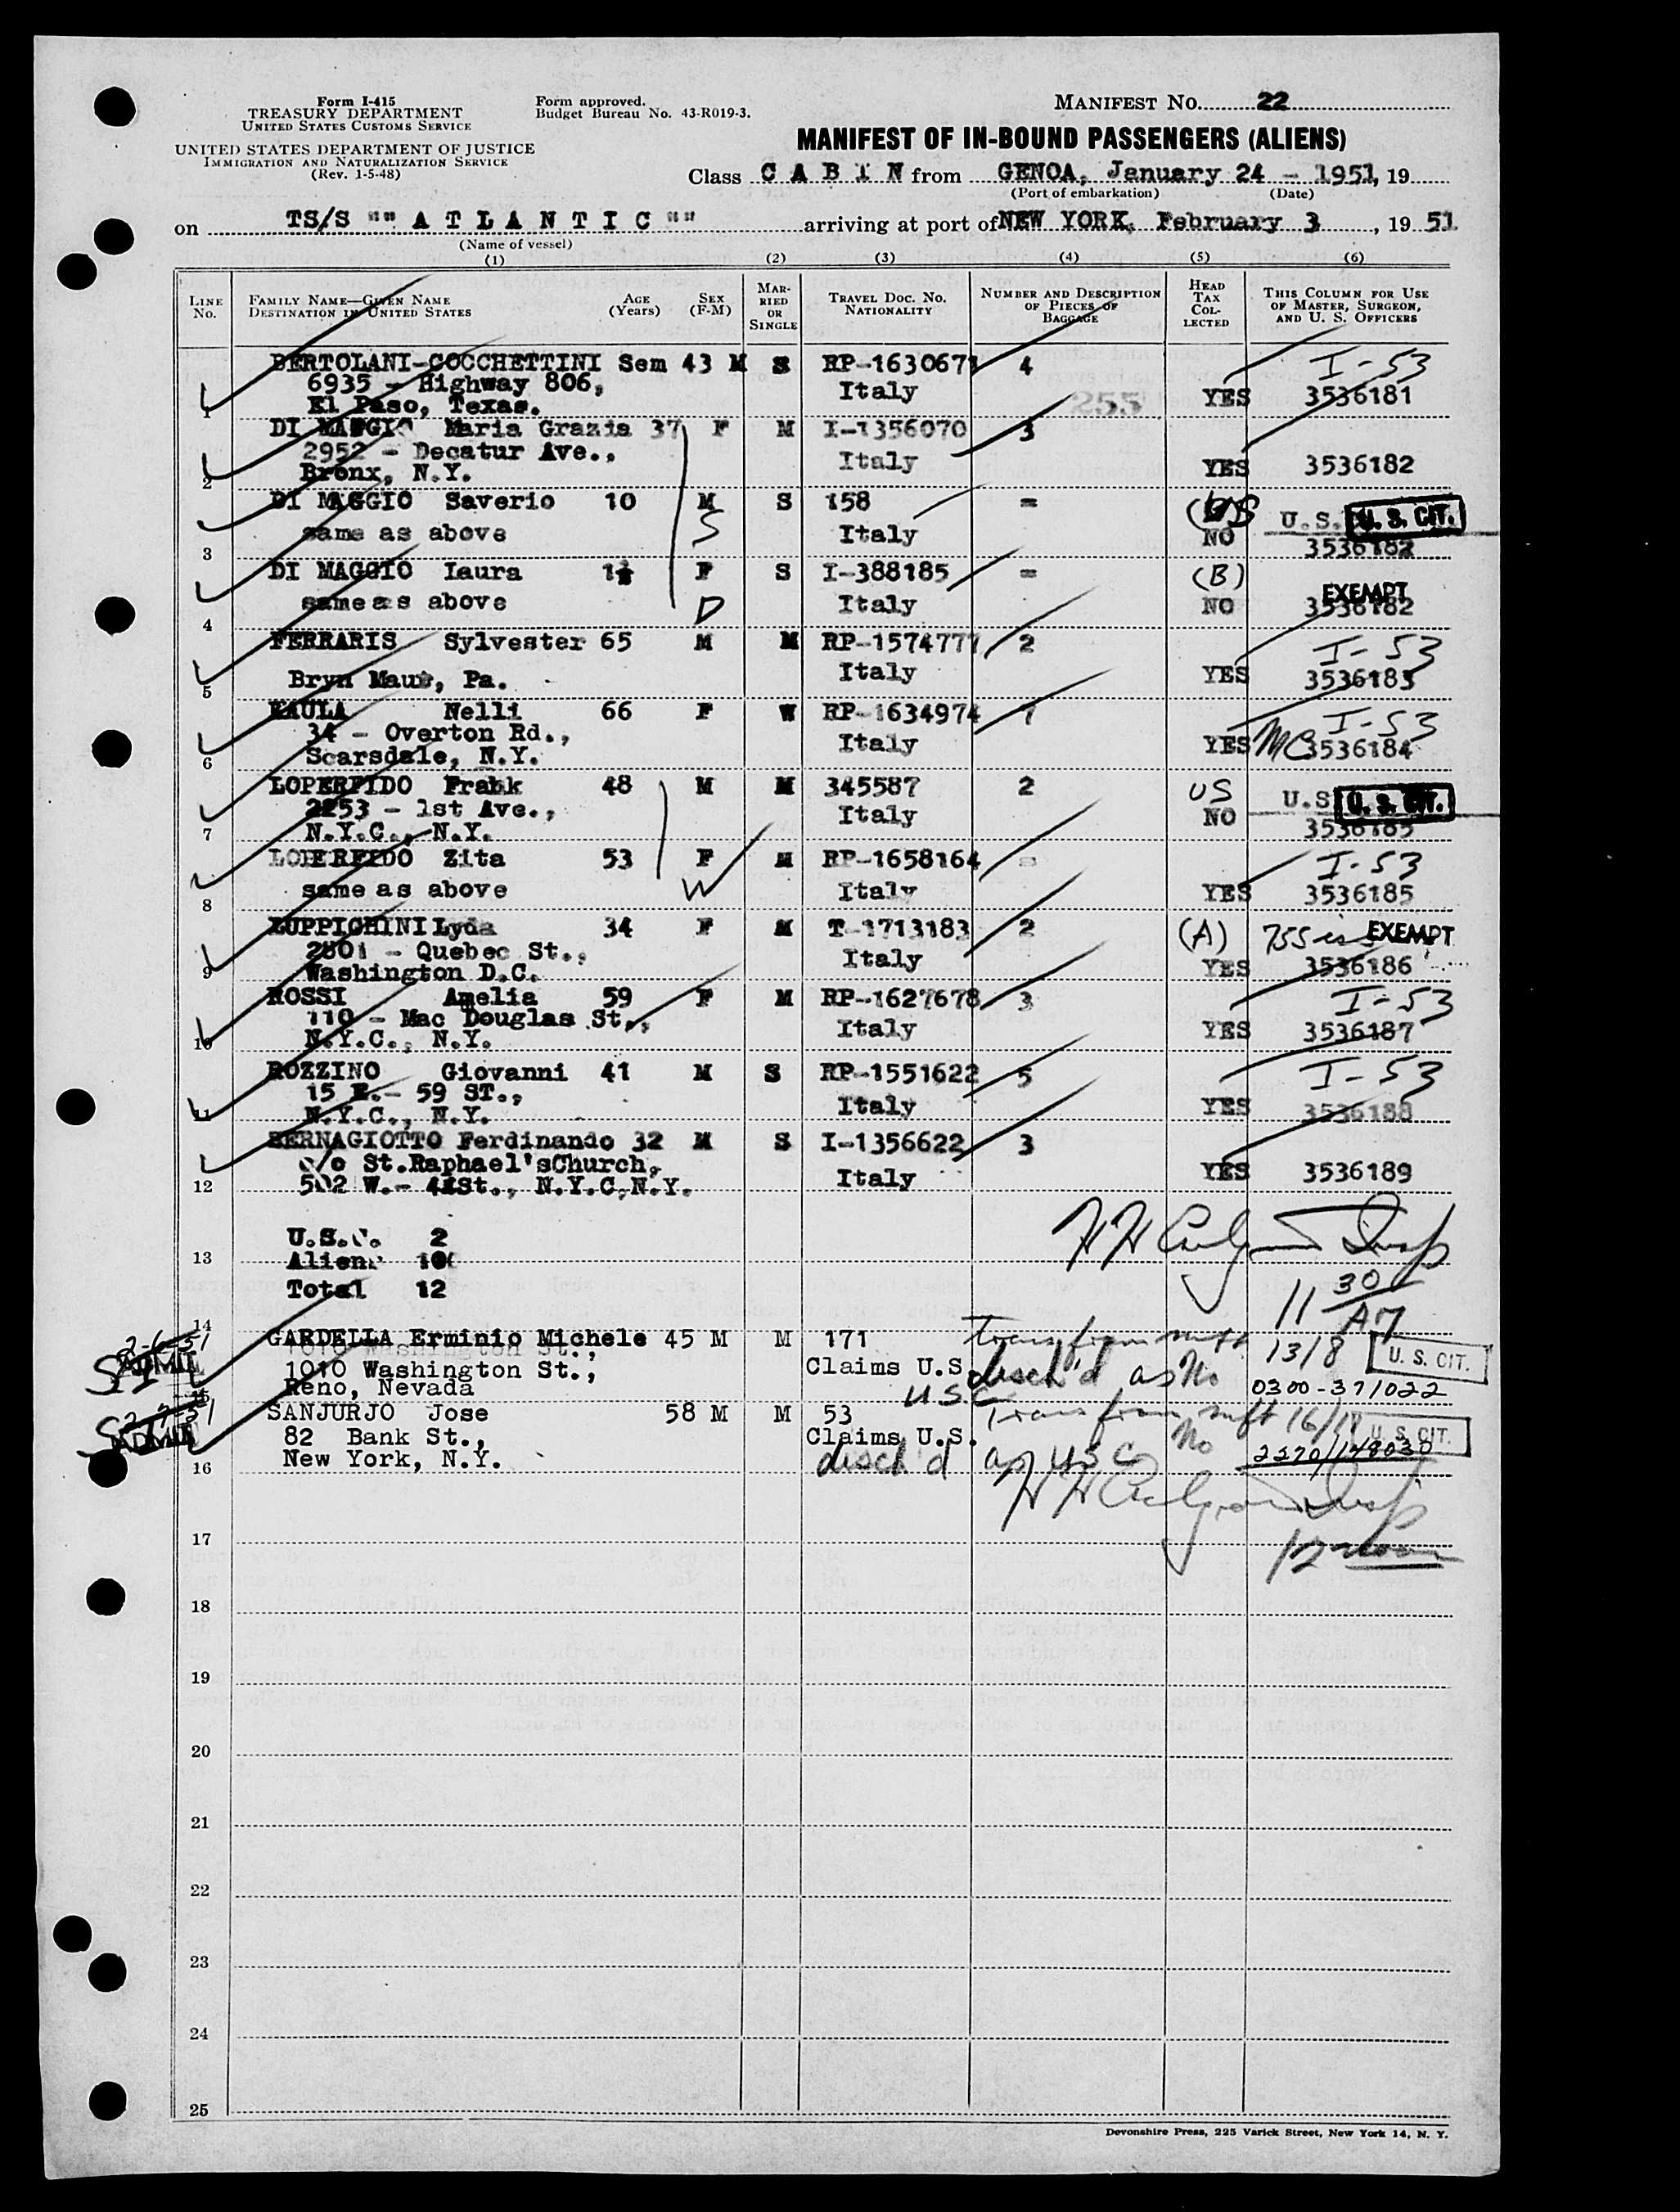 Form I-415
TREASURY DEPARTMENT
UNITED STATES CUSTOMS SERVICE
UNITED STATES DEPARTMENT OF JUSTICE
IMMIGRATION AND NATURALIZATION SERVICE
(Rev. 1-5-48)
Form approved.
Budget Bureau No. 43-R019-3.
MANIFEST NO. 22
MANIFEST OF IN-BOUND PASSENGERS (ALIENS)
Class C A B I N from GENOA, January 24 - 1951, 19
(Port of embarkation) (Date)
on TS/S "" A T L A N T I C "" arriving at port of NEW YORK, February 3, 19 51
(Name of vessel)
(1) (2) (3) (4) (5) (6)
LINE No. FAMILY NAME—GIVEN NAME DESTINATION IN UNITED STATES AGE (Years) SEX (F-M) MARRIED OR SINGLE TRAVEL DOC. NO. NATIONALITY NUMBER AND DESCRIPTION OF PIECES OF BAGGAGE HEAD TAX COLLECTED THIS COLUMN FOR USE OF MASTER, SURGEON, AND U. S. OFFICERS
BERTOLANI-COCCHETTINI Sem 43 M S RP-1630671 4 I-53
6935 - Highway 806, Italy 255 YES 3536181
1 El Paso, Texas.
DI MAGGIO Maria Grazia 37 F M I-1356070 3
2952 - Decatur Ave., Italy YES 3536182
2 Bronx, N.Y.
DI MAGGIO Saverio 10 M S 158 = US U.S. U. S. CIT.
same as above S Italy NO 3536182
3
DI MAGGIO Laura F S I-388185 = (B) EXEMPT
same as above D Italy NO 3536182
4
FERRARIS Sylvester 65 M M RP-1574777 2 I-53
5 Bryn Maur, Pa. Italy YES 3536183
KAULA Nelli 66 F W RP-1634974 7 I-53
34 - Overton Rd., Italy YES MC 3536184
6 Scarsdale, N.Y.
LOPERFIDO Frank 48 M M 345587 2 US U.S. U. S. CIT.
2253 - 1st Ave., Italy NO 3536185
7 N.Y.C., N.Y.
LOPERFIDO Zita 53 F M RP-1658164 = I-53
same as above W Italy YES 3536185
8
LUPPICHINI Lyda 34 F M T-1713183 2 (A) EXEMPT
2501 - Quebec St., Italy YES 3536186
9 Washington D.C.
ROSSI Amelia 59 F M RP-1627678 3 I-53
110 - Mac Douglas St., Italy YES 3536187
10 N.Y.C., N.Y.
ROZZINO Giovanni 41 M S RP-1551622 5 I-53
15 E.- 59 ST., Italy YES 3536188
11 N.Y.C., N.Y.
BERNAGIOTTO Ferdinando 32 M S I-1356622 3
c/o St.Raphael'sChurch, Italy YES 3536189
12 502 W.- 41St., N.Y.C,N.Y.
U.S.C. 2
13 Aliens 10
Total 12 11 30
14 AM
GARDELLA Erminio Michele 45 M M 171 Trans from mft 13/8 U. S. CIT.
ADMIT 1010 Washington St., Claims U.S. disch'd as No
15 Reno, Nevada U S C 0300-371022
SANJURJO Jose 58 M M 53 Trans from mft U. S. CIT.
ADMIT 82 Bank St., Claims U.S. No
16 New York, N.Y. disch'd as U S C 2270/148030
17 12 noon
18
19
20
21
22
23
24
25
Devonshire Press, 225 Varick Street, New York 14, N. Y.